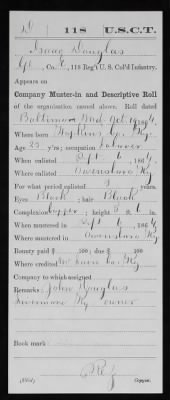 D | 118 | U.S.C.T.
Isaac Douglas
Co. , 118 Reg't U. S. Col'd Infantry.
Appears on
Company Muster-in and Descriptive Roll
of the organization named above. Roll dated
Baltimore Md. Oct. 19, 1864.
Where born Hopkins Co. Ky.
Age 25 y'rs; occupation Laborer
When enlisted Sept 6, 1864.
Where enlisted Owensboro Ky
For what period enlisted 3 years.
Eyes Black; hair Black
Complexion Copper; height 5 ft. in.
When mustered in Sept 6, 1864.
Where mustered in Owensboro Ky
Bounty paid $ 100; due $ 100
Where credited McLean Co. Ky
Company to which assigned
Remarks: John Douglas
Livermore Ky owner
Book mark:
(Copyist.